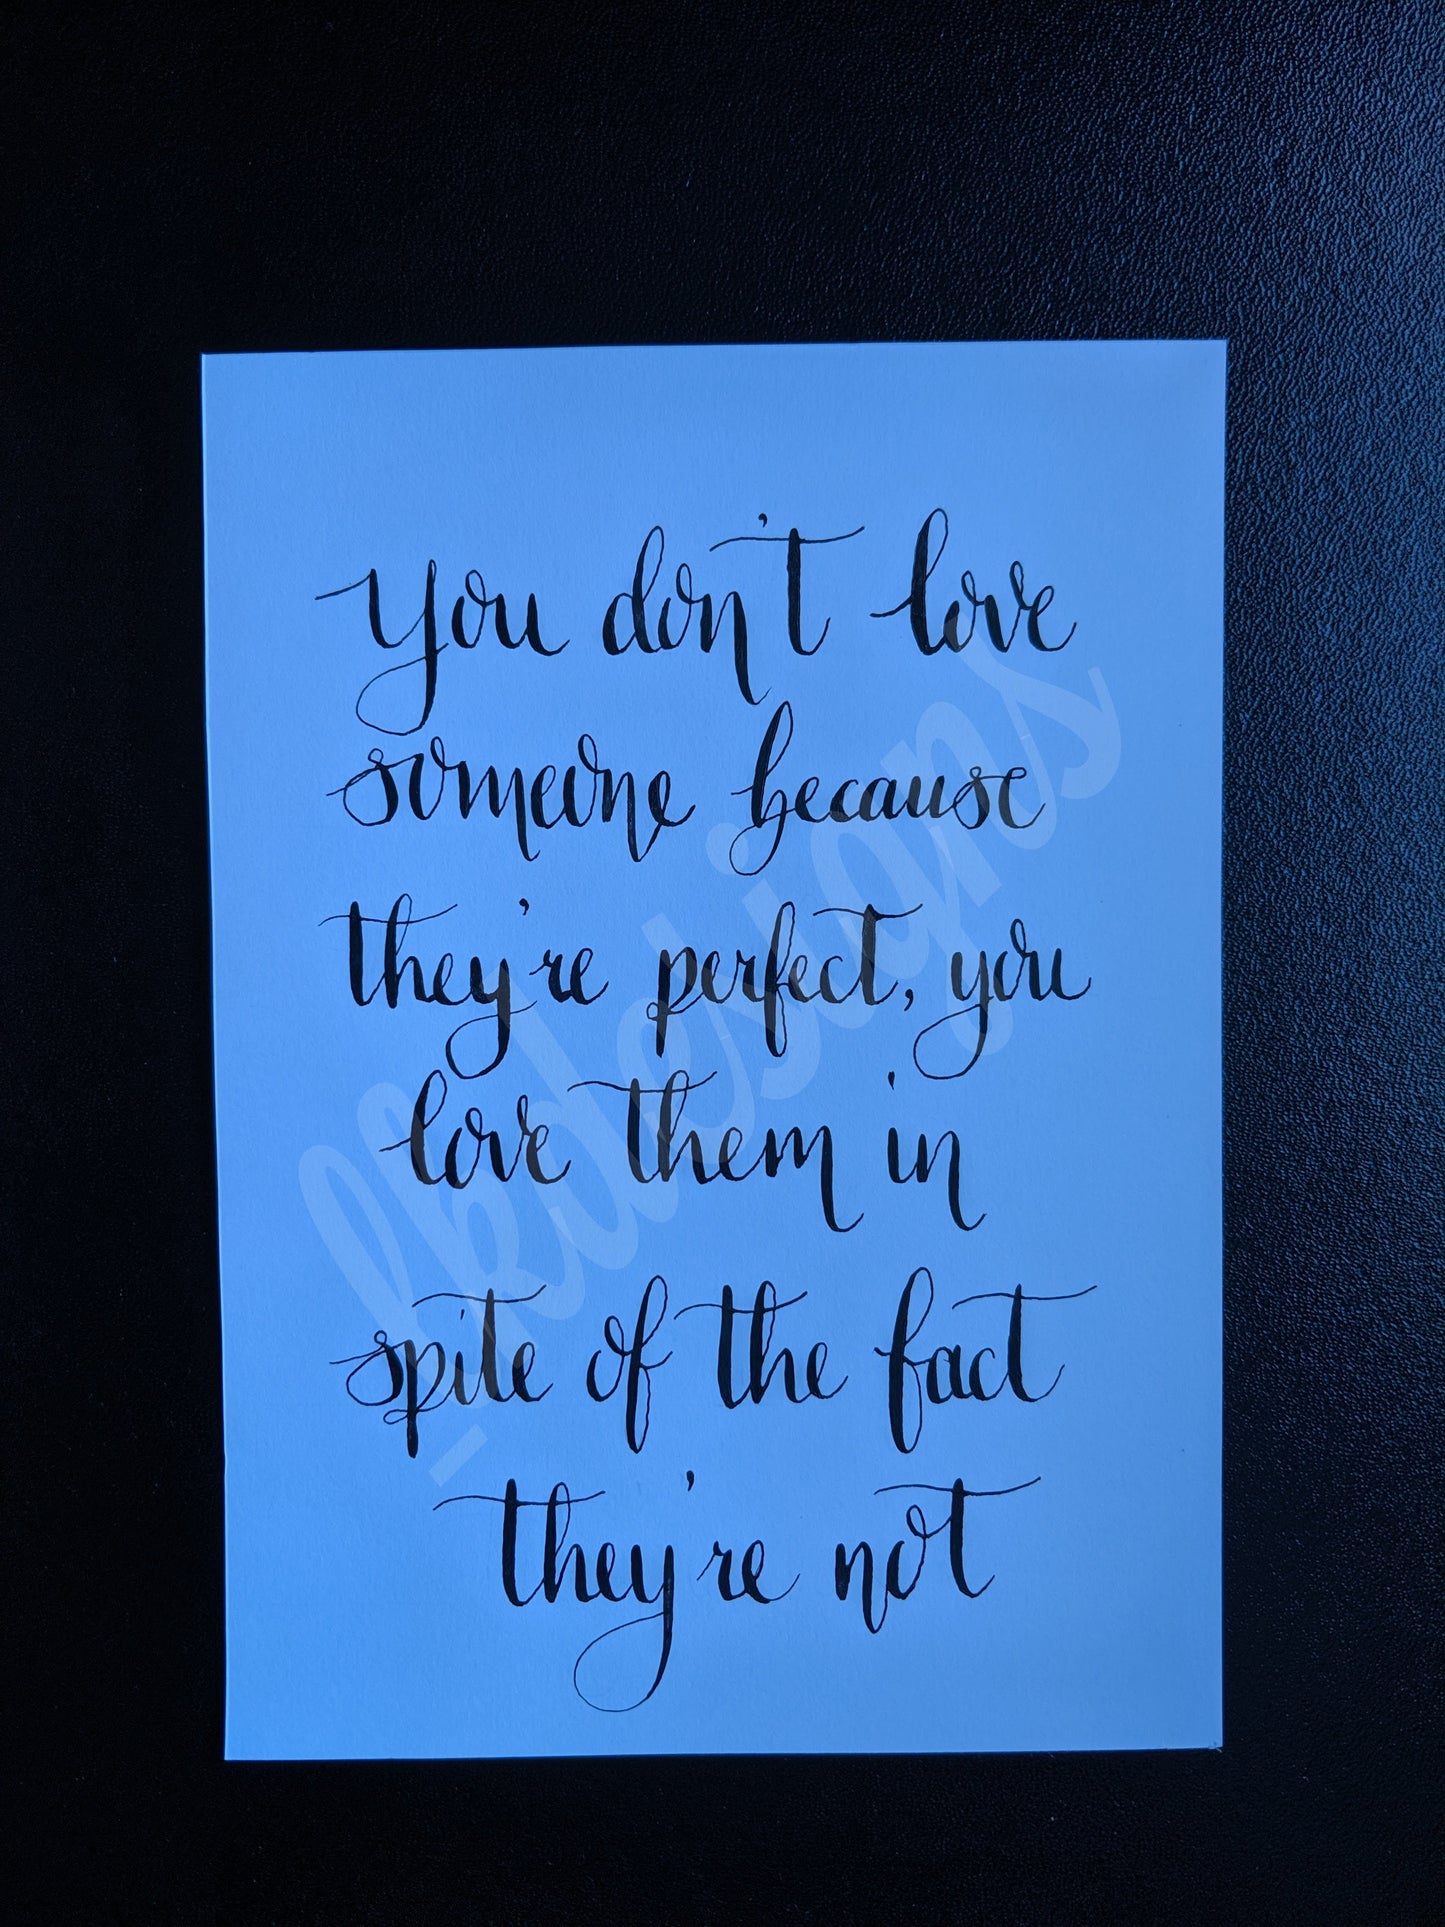 you don't love
someone because
they're perfect, you
love them in
spite of the fact
they're not